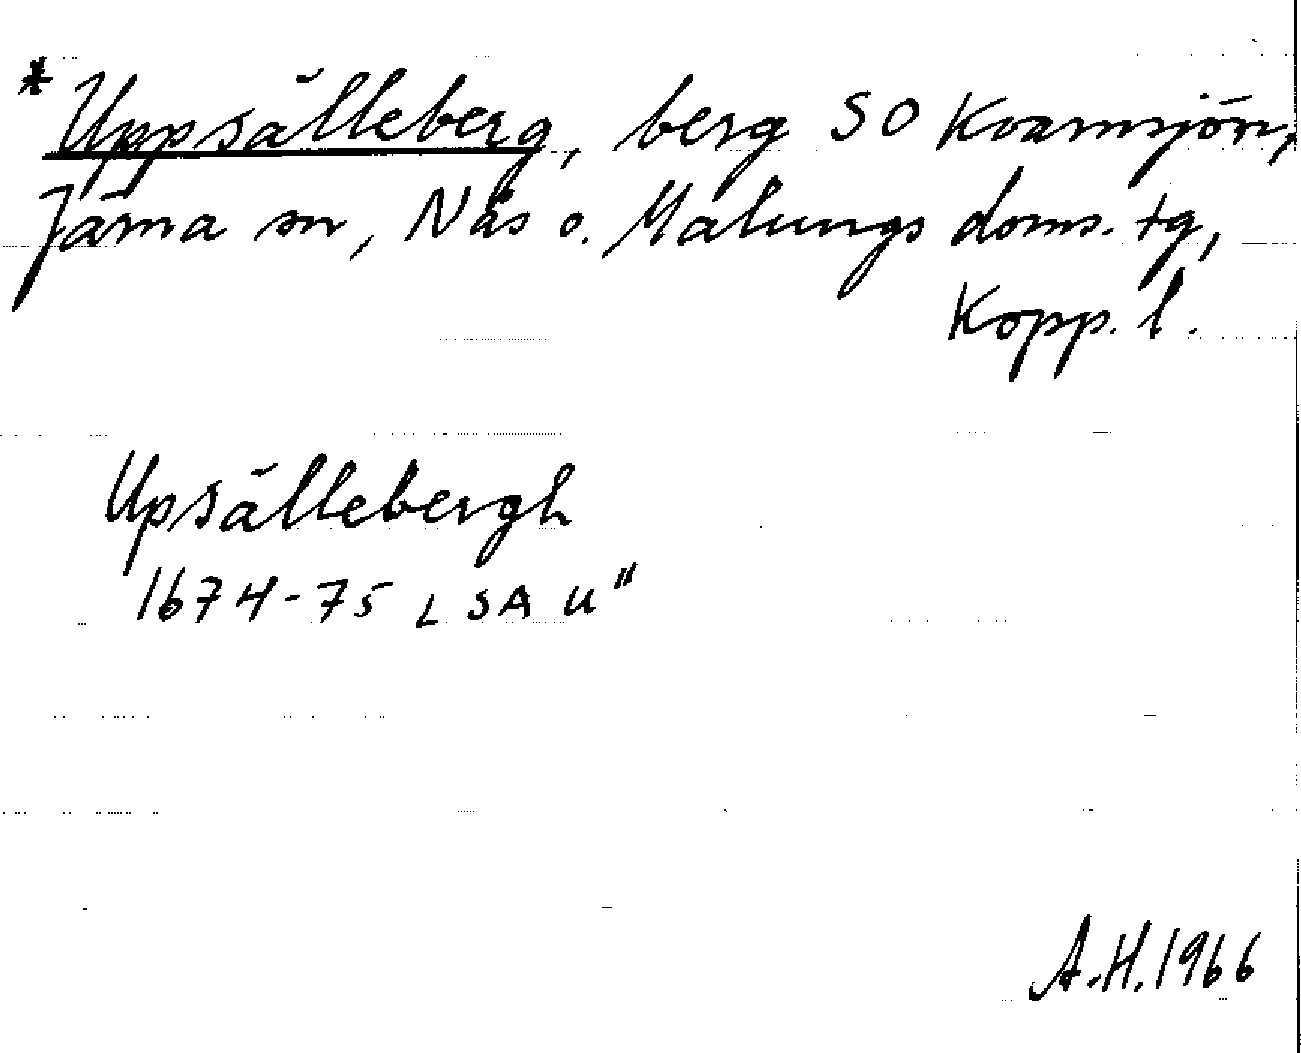 *Uppsälleberg, berg SO Kvarnsjön,
Järna sn, Nås o. Malungs doms. tg,
Kopp. l.
Upsällebergh
1674-75 LSA U"
A.H. 1966